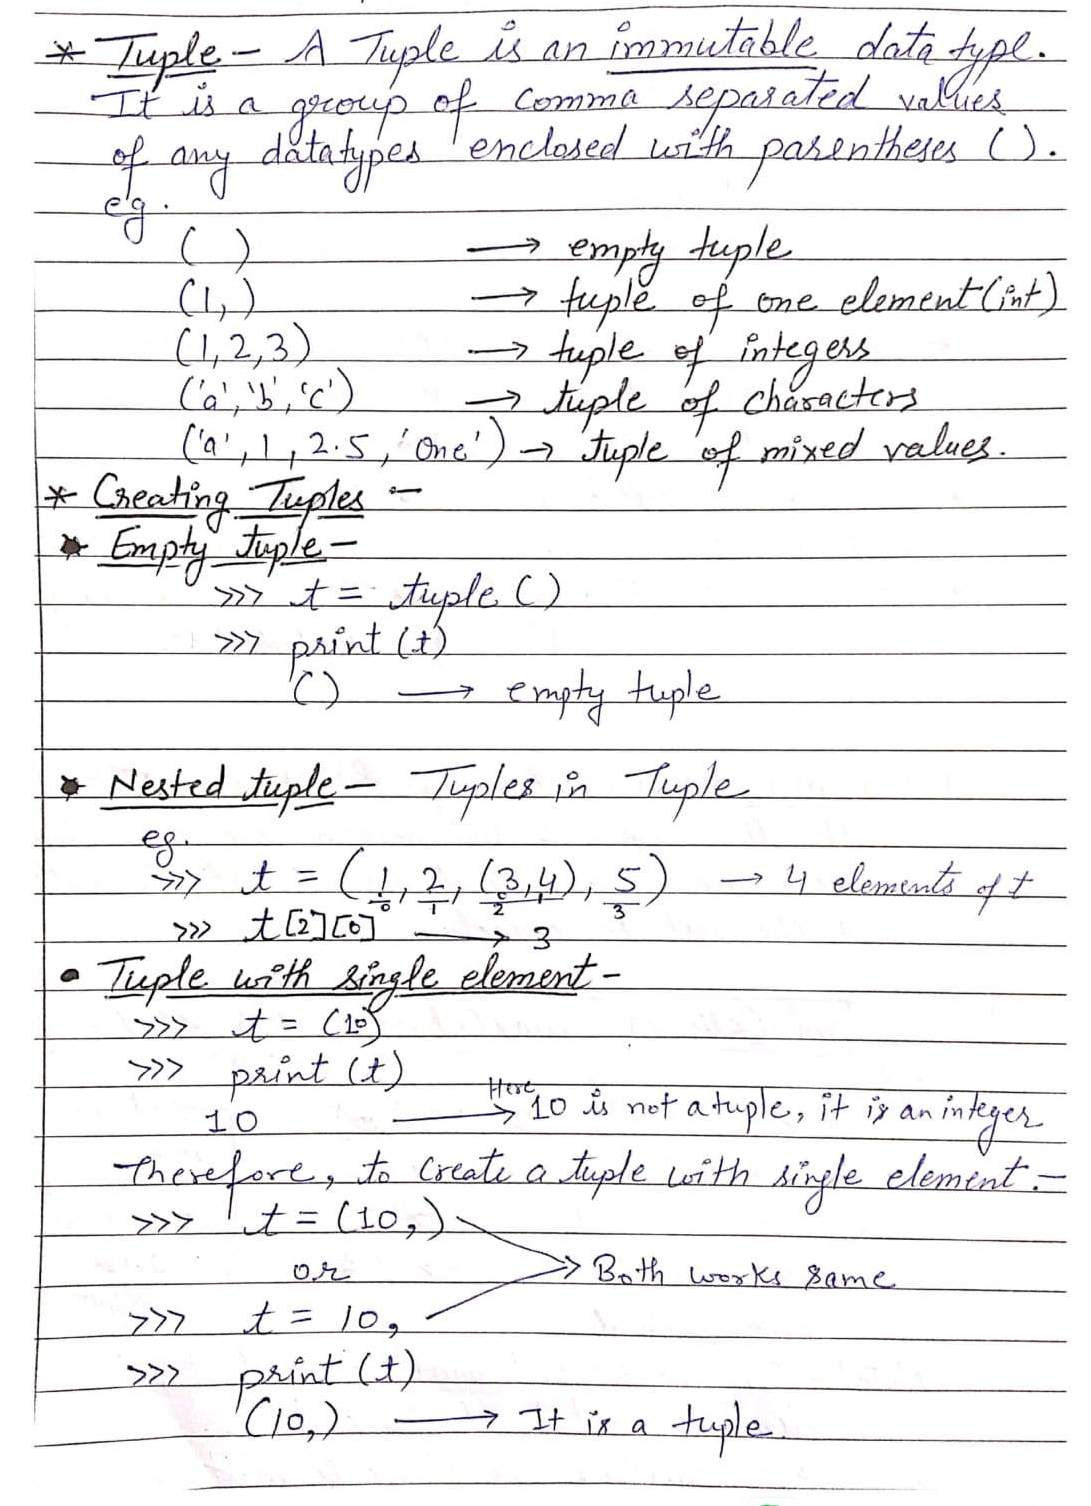 * Tuple - A Tuple is an immutable data type.
It is a group of comma separated values
of any datatypes enclosed with parentheses ().
eg.
( ) → empty tuple
(1,) → tuple of one element (int)
(1,2,3) → tuple of integers
('a','b','c') → tuple of characters
('a',1,2.5,'One') → tuple of mixed values.
* Creating Tuples -
* Empty tuple -
>>> t = tuple ()
>>> print (t)
() → empty tuple
* Nested tuple - Tuples in Tuple
eg.
>>> t = (1, 2, (3,4), 5) → 4 elements of t
0 1 0 1 2 3
>>> t[2][0] → 3
• Tuple with single element -
>>> t = (10)
>>> print (t)
10 → Here 10 is not a tuple, it is an integer
Therefore, to create a tuple with single element :-
>>> t = (10,)
or → Both works same
>>> t = 10,
>>> print (t)
(10,) → It is a tuple.